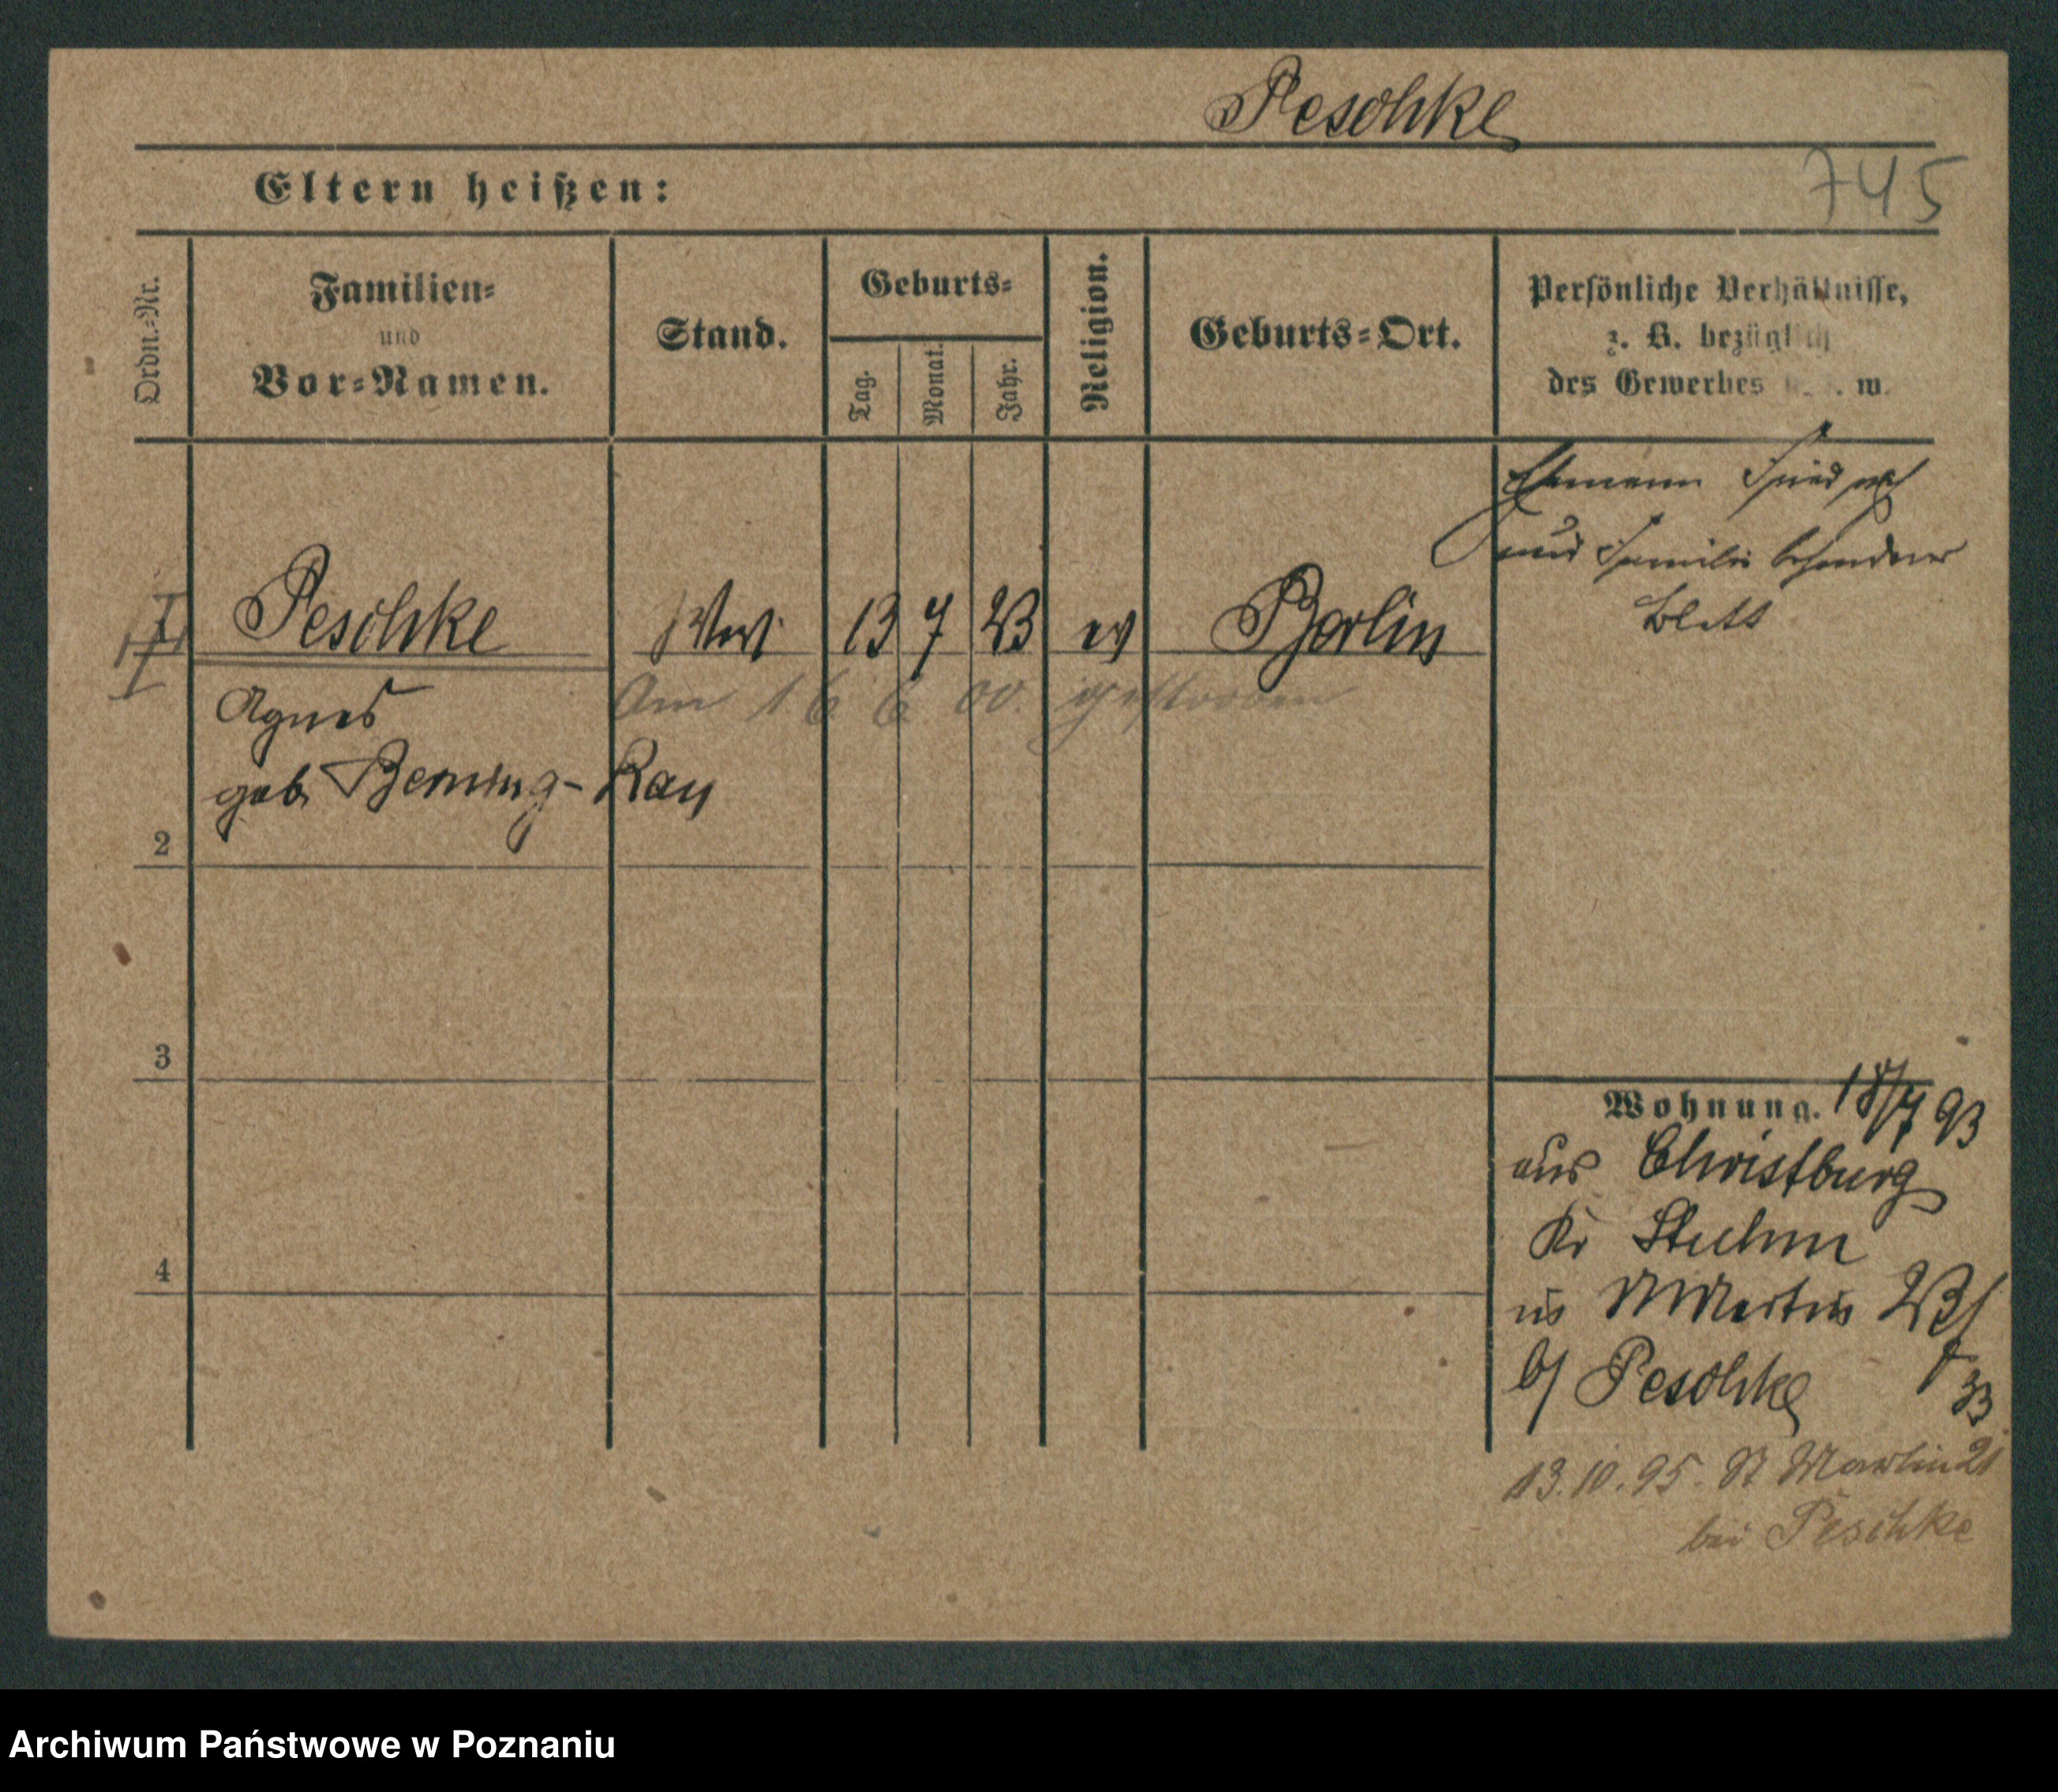 Peschke
745
Eltern heißen:
Ordn.-Nr.
Familien-
und
Vor-Namen.
Stand.
Geburts-
Tag.
Monat.
Jahr.
Religion.
Geburts-Ort.
Persönliche Verhältnisse,
z. B. bezüglich
des Gewerbes u. s. w.
Ehemann
und Familie besonderer
Blatt
Peschke 13 7 23 ev Berlin
Agnes Am 16 6 00. gestorben
geb Berning-Kay
2
3
4
Wohnung. 18/7 93
aus Christburg
Kr Stuhm
in Martin 23/
b/ Peschke 33
13.10.95. St Martin 21
bei Peschke
Archiwum Państwowe w Poznaniu